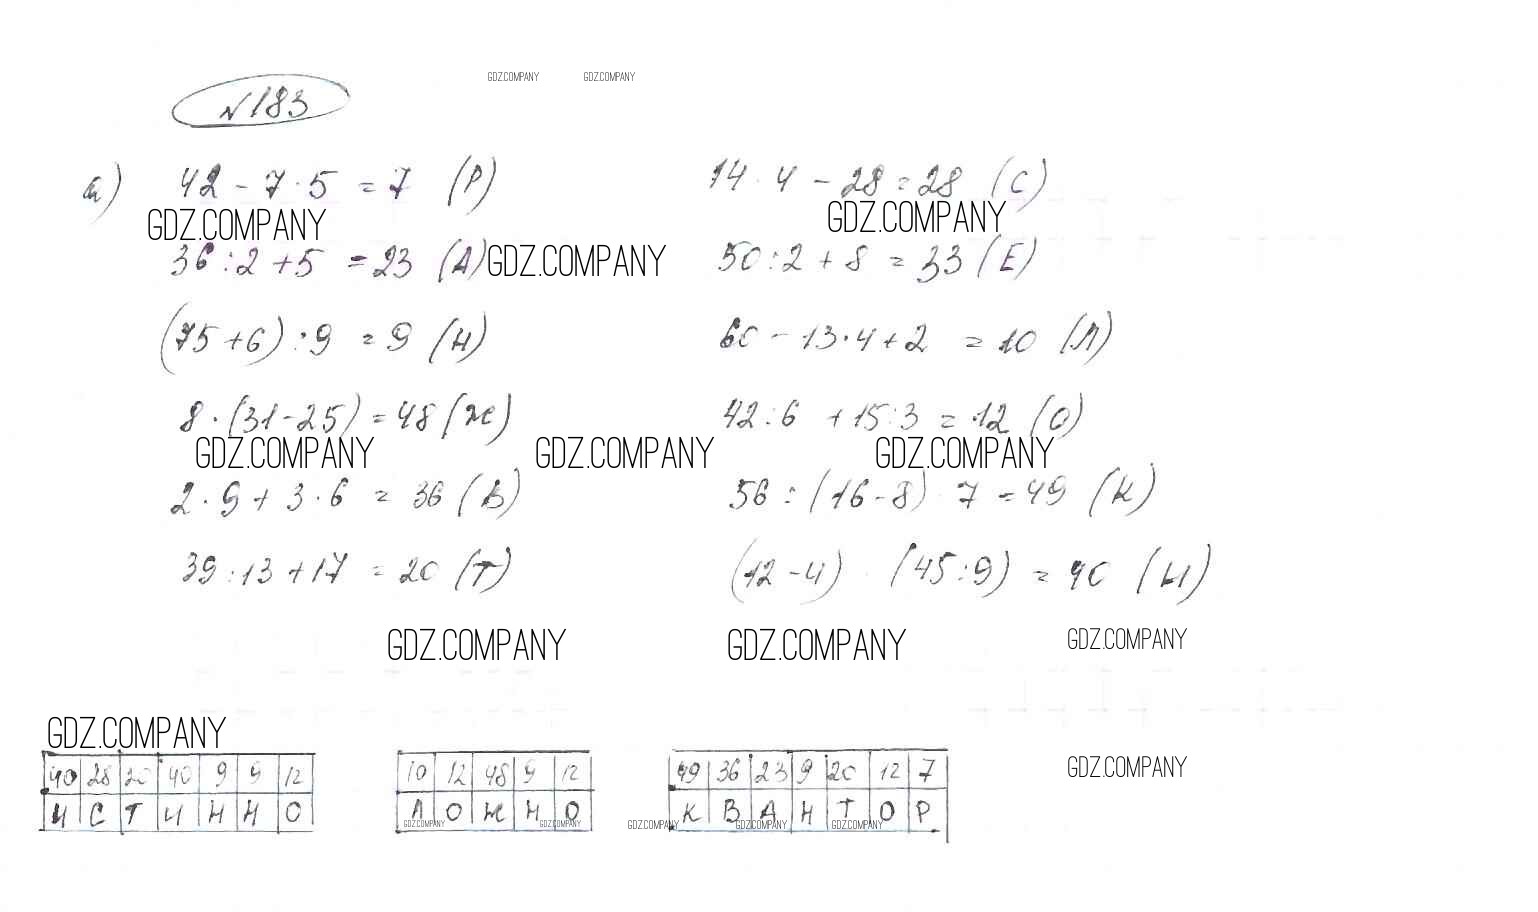 GDZ.COMPANY GDZ.COMPANY
№183
а) 42 - 7 · 5 = 7 (Р) 14 · 4 - 28 = 28 (С)
GDZ.COMPANY GDZ.COMPANY
36 : 2 + 5 = 23 (А) GDZ.COMPANY 50 : 2 + 8 = 33 (Е)
(75 + 6) : 9 = 9 (Н) 60 - 13 · 4 + 2 = 10 (Л)
8 · (31 - 25) = 48 (Ж) 42 : 6 + 15 : 3 = 12 (О)
GDZ.COMPANY GDZ.COMPANY GDZ.COMPANY
2 · 9 + 3 · 6 = 36 (В) 56 : (16 - 8) · 7 = 49 (К)
39 : 13 + 17 = 20 (Т) (12 - 4) · (45 : 9) = 40 (И)
GDZ.COMPANY GDZ.COMPANY GDZ.COMPANY
GDZ.COMPANY
GDZ.COMPANY
40 28 20 40 9 9 12 10 12 48 9 12 49 36 23 9 20 12 7
И С Т И Н Н О Л О Ж Н О К В А Н Т О Р
GDZ.COMPANY GDZ.COMPANY GDZ.COMPANY GDZ.COMPANY GDZ.COMPANY